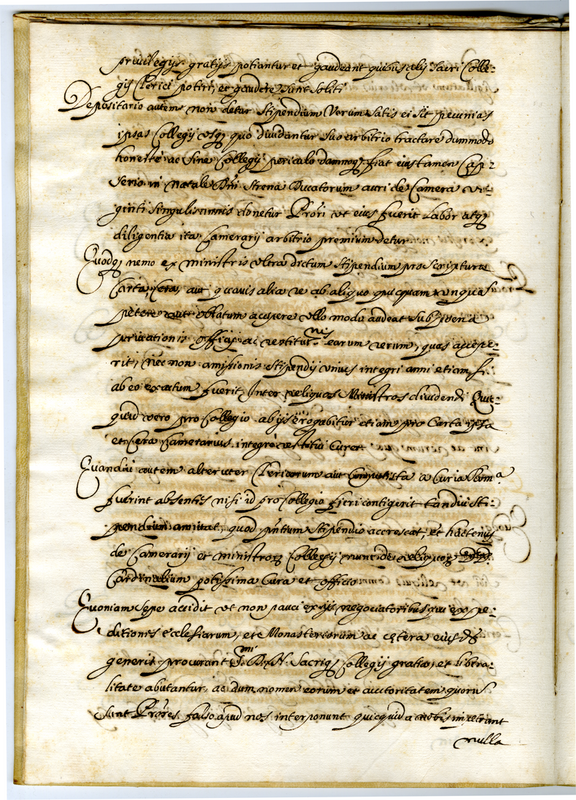 privilegijs gratijs potiantur et gaudeant quibus alij Sacri Colle-
gij Clerici potiri et gaudere sunt soliti
Depositario autem non detur Stipendium Verum Satis ei sit pecunias
ipsas Collegij usq quo diuidantur Suo arbitrio tractare dummodo
honeste ac Sine Collegij periculo damnoq fiat eius tamen
in Natale Dni Strena Ducatorum auri de Camera vi-
ginti Singulis annis donetur Priori ut eius fuerit labor atq
diligentia ita Camerarij arbitrio premium detur
Quodq nemo ex ministris ultra dictum Stipendium pro Scriptura
Carta, Cera, aut quauis alia re ab aliquo quicquam
petere aut oblatum accipere ullo modo audeat Sub pena
priuationis officij ac restitutnis earum rerum, quas accepe-
rit, nec non amissionis Stipendij unius integri anni etiam, Si
ab eo exactum fuerit Inter reliquos Ministros diuidendi
quid vero pro Collegio ab ijs erogabitur etiam pro Carta ipsa
et Cera Camerarius integre restitui Curet
Quandiu autem alteruter Clericorum aut Computista a Curia Roma
fuerint absentes nisi id pro Collegio fieri contigerit tandiu Sti-
pendium amittat, quod pntium Stipendio accrescat, et hactenus
de Camerarij et ministroq Collegij munere
Cardinalium potissima Cura et officio
Quoniam Sepe accidit ut non pauci ex ijs negociatoribus qui expe-
ditiones ecclesiarum, et Monasteriorum ac cetera eius
generis procurant Smi. D. N. Sacriq Collegij gratia, et libera-
litate abutantur, ac dum nomen eorum et auctoritatem quorum
Sunt Prores falso apud nos interponunt quicquid a nobis
nulla